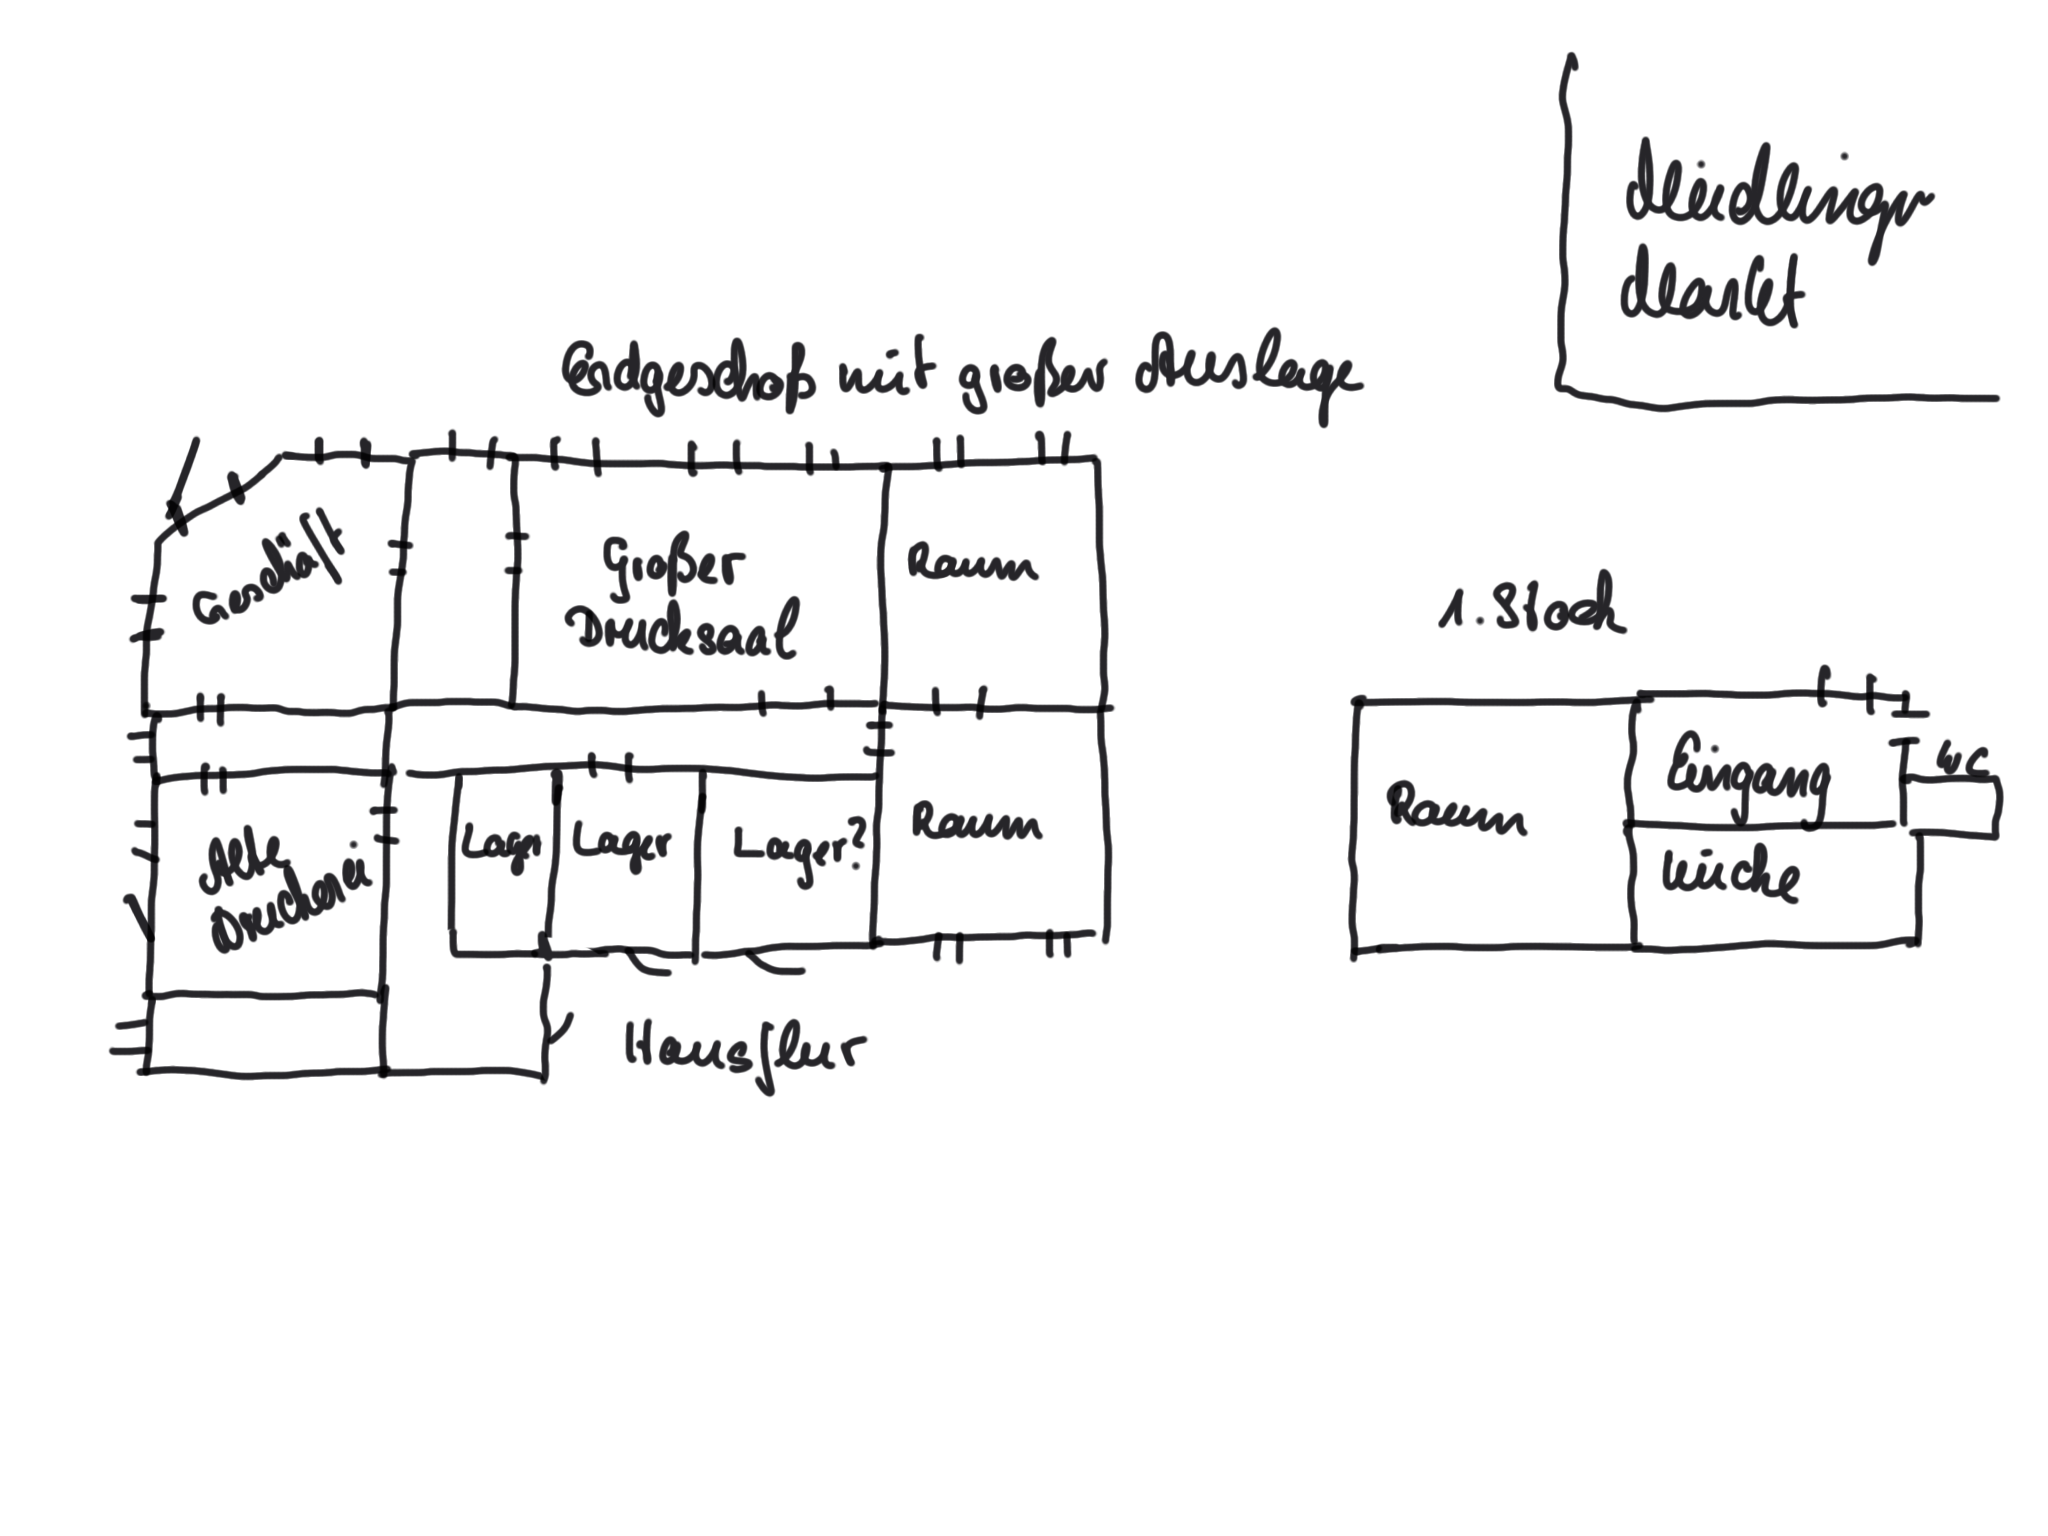 Meidlinger
Markt
Erdgeschoß mit großer Auslage
Geschäft
Großer
Drucksaal
Raum
Alte
Druckerei
Lager
Lager
Lager?
Raum
Hausflur
1. Stock
Raum
Eingang
WC
Küche